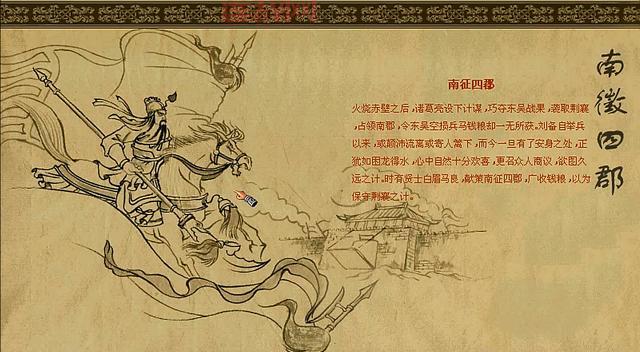 南征四郡
火烧赤壁之后,诸葛亮设下计谋,巧夺东吴战果,袭取荆襄
,占领南郡,令东吴空损兵马钱粮却一无所获.刘备自举兵
以来,或颠沛流离或寄人篱下,而今一旦有了安身之处,正
犹如困龙得水,心中自然十分欢喜,更召众人商议,欲图久
远之计.时有贤士白眉马良,献策南征四郡,广收钱粮,以为
保守荆襄之计.
南徵四郡